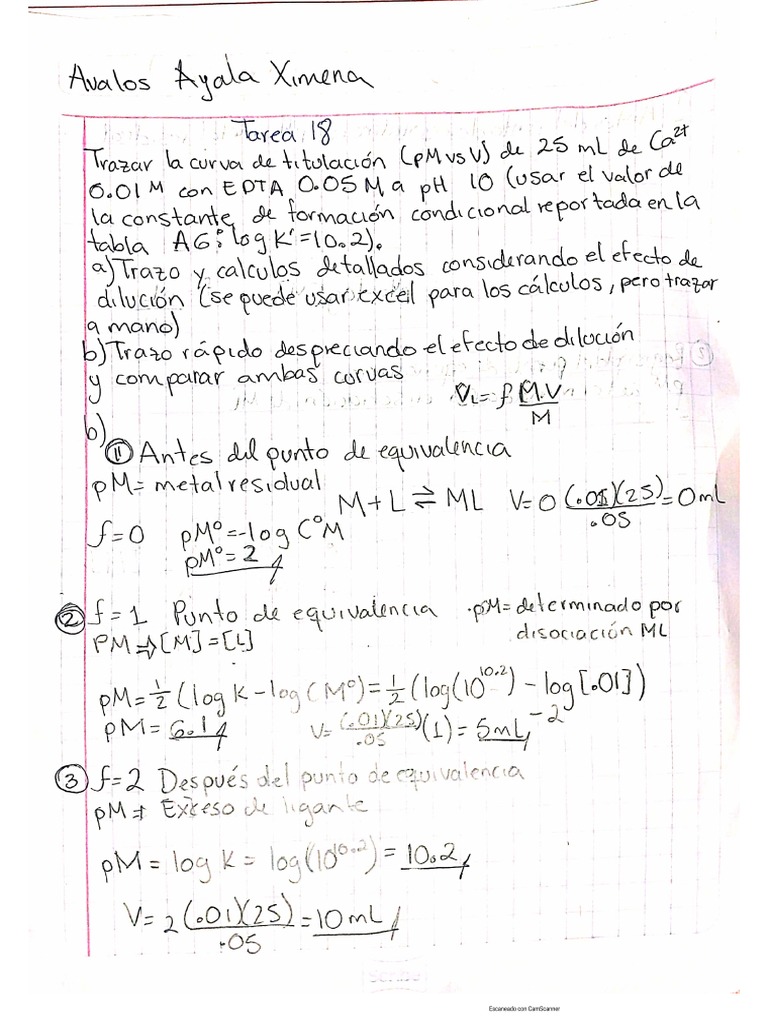 Avalos Ayala Ximena
Tarea 18
Trazar la curva de titulación (pM vs V) de 25 mL de Ca²⁺
0.01 M con EDTA 0.05 M a pH 10 (usar el valor de
la constante de formación condicional reportada en la
tabla AG: log K'=10.2).
a) Trazo y calculos detallados considerando el efecto de
dilución (se puede usar excel para los cálculos, pero trazar
a mano)
b) Trazo rápido despreciando el efecto de dilución
y comparar ambas curvas
V_L = f M.V / M
b)
① Antes del punto de equivalencia
pM = metal residual
M + L ⇌ ML V = 0 (.01)(25) / .05 = 0 mL
f = 0 pM° = -log C°M
pM° = 2
② f = 1 Punto de equivalencia · pM = determinado por
disociación ML
PM ⇒ [M] = [L]
pM = 1/2 (log K - log CM°) = 1/2 (log(10^10.2) - log[.01])
-2
pM = 6.1 V = (.01)(25) / .05 (1) = 5 mL
③ f = 2 Después del punto de equivalencia
pM ⇒ Exceso de ligante
pM = log K = log(10^10.2) = 10.2
V = 2 (.01)(25) / .05 = 10 mL
Escaneado con CamScanner